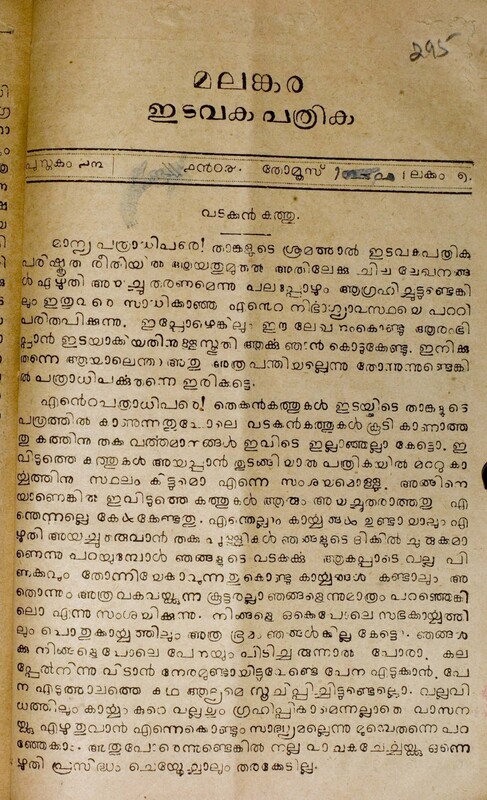 295
മലങ്കര
ഇടവക പത്രിക
പുസ്തകം ൧൩ ൧൯൦൪. തോമൂസ് ലക്കം ൭.
വടക്കൻ കത്തു.
മാന്യ പത്രാധിപരെ! താങ്കളുടെ ശ്രമത്താൽ ഇടവകപത്രിക
പരിഷ്കൃത രീതിയിൽ ആയതുമുതൽ അതിലേക്കു ചില ലേഖനങ്ങ
ൾ എഴുതി അയച്ചു തരണമെന്നു പലപ്പോഴും ആഗ്രഹിച്ചിട്ടുണ്ടെങ്കി
ലും ഇതുവരെ സാധിക്കാഞ്ഞ എന്റെ നിൎഭാഗ്യാവസ്ഥയെ പററി
പരിതപിക്കുന്നു. ഇപ്പോഴെങ്കിലും ഈ ലേഖനംകൊണ്ടു ആരംഭി
പ്പാൻ ഇടയാക്കിയതിനുള്ള സ്തുതി ആൎക്കു ഞാൻ കൊടുക്കേണ്ടു. ഇനിക്കു
തന്നെ ആയാലെന്താ? അതു അത്ര പന്തിയല്ലെന്നു തോന്നുന്നുണ്ടെങ്കി
ൽ പത്രാധിപൎക്കുതന്നെ ഇരിക്കട്ടെ.
എൻറെപത്രാധിപരെ! തെക്കൻകത്തുകൾ ഇടയ്ക്കിടെ താങ്കളുടെ
പത്രത്തിൽ കാണുന്നതുപോലെ വടക്കൻകത്തുകൾ കൂടി കാണാത്ത
തു കത്തിന്നു തക്ക വൎത്തമാനങ്ങൾ ഇവിടെ ഇല്ലാഞ്ഞല്ലാ കേട്ടൊ. ഇ
വിടുത്തെ കത്തുകൾ അയപ്പാൻ തുടങ്ങിയാൽ പത്രികയിൽ മററു കാ
ൎയ്യത്തിന്നു സ്ഥലം കിട്ടുമൊ എന്നെ സംശയമൊള്ളു. അങ്ങിനെ
യാണെങ്കിൽ ഇവിടുത്തെ കത്തുകൾ ആരും അയച്ചുതരാത്തതു എ
ന്തെന്നല്ലെ കേൾക്കേണ്ടതു. എന്തെല്ലാം കാൎയ്യങ്ങൾ ഉണ്ടായാലും എ
ഴുതി അയച്ചു തരുവാൻ തക്ക പുള്ളികൾ ഞങ്ങളുടെ ദിക്കിൽ ചുരുക്കമാ
ണെന്നു പറയുമ്പോൾ ഞങ്ങളുടെ വടക്കൎക്കു ആകപ്പാടെ വല്ല പി
ണക്കവും തോന്നിയേക്കാവുന്നതുകൊണ്ടു കാൎയ്യങ്ങൾ കണ്ടാലും അ
തൊന്നും അത്ര വകവയ്ക്കുന്ന കൂട്ടരല്ലാ ഞങ്ങളെന്നുമാത്രം പറഞ്ഞെങ്കി
ലൊ എന്നു സംശയിക്കുന്നു. നിങ്ങളെ ഒക്കെപോലെ സഭകാൎയ്യത്തി
ലും പൊതുകാൎയ്യത്തിലും അത്ര ഭ്രമം ഞങ്ങൾക്കില്ല കേട്ടൊ. ഞങ്ങൾ
ക്കു നിങ്ങളെപോലെ പേനയും പിടിച്ചിരുന്നാൽ പോരാ. കല
പ്പേൽനിന്നു വിടാൻ നേരമുണ്ടായിട്ടുവേണ്ടെ പേന എടുക്കാൻ. പേ
ന എടുത്താലത്തെ കഥ ആദ്യമെ സൂചിപ്പിച്ചിട്ടുണ്ടെല്ലൊ. വല്ലവി
ധത്തിലും കാൎയ്യം കുറെ വല്ലതും ഗ്രഹിപ്പിക്കാമെന്നല്ലാതെ വാസന
യ്ക്കു എഴുതുവാൻ എന്നെകൊണ്ടും സാദ്ധ്യമല്ലെന്നു മുമ്പെതന്നെ പറ
ഞ്ഞേക്കാം. അതുപോരെന്നുണ്ടെങ്കിൽ നല്ല വാചകചേൎച്ചയ്ക്കു ഒന്നെ
ഴുതി പ്രസിദ്ധം ചെയ്തേച്ചാലും തരക്കേടില്ല.